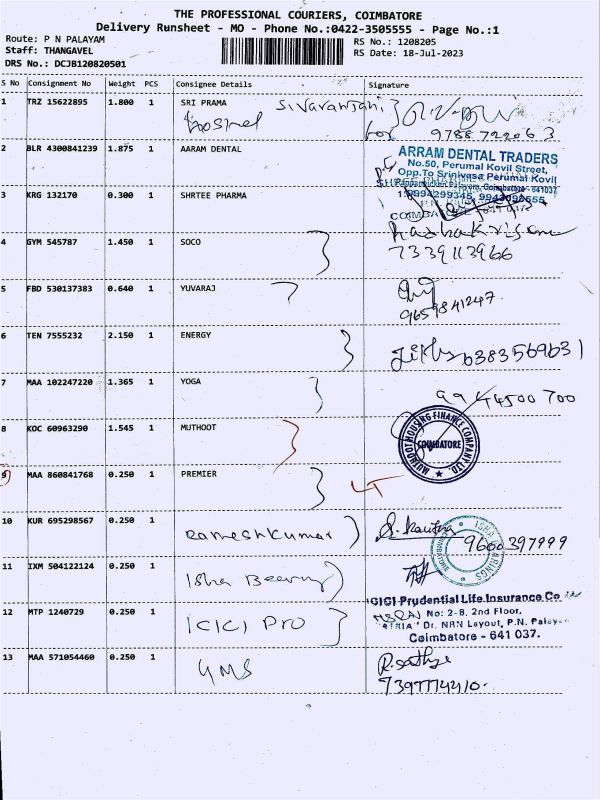 THE PROFESSIONAL COURIERS, COIMBATORE
Delivery Runsheet - MO - Phone No.:0422-3505555 - Page No.:1
Route: P N PALAYAM
RS No.: 1208205
Staff: THANGAVEL
RS Date: 18-Jul-2023
DRS No.: DCJB120820501
S No Consignment No Weight PCS Consignee Details Signature
1 TRZ 15622895 1.800 1 SRI PRAMA Sivaranjani
for 9788722063
2 BLR 4300841239 1.875 1 AARAM DENTAL
ARRAM DENTAL TRADERS
No.50, Perumal Kovil Street,
Opp.To Srinivasa Perumal Kovil
Coimbatore - 641037
3 KRG 132170 0.300 1 SHRTEE PHARMA
4 GYM 545787 1.450 1 SOCO
7339113966
5 FBD 530137383 0.640 1 YUVARAJ
9659841247
6 TEN 7555232 2.150 1 ENERGY
6383569631
7 MAA 102247220 1.365 1 YOGA
8 KOC 60963290 1.545 1 MUTHOOT
MUTHOOT HOUSING FINANCE COMPANY LTD.
COIMBATORE
9 MAA 860841768 0.250 1 PREMIER
10 KUR 695298567 0.250 1 Rameshkumar
9600397999
11 IXM 504122124 0.250 1 Isha Bearing
ISHA BEARINGS
COIMBATORE
12 MTP 1240729 0.250 1 ICICI Pro
ICICI Prudential Life Insurance Co
No: 2-8, 2nd Floor,
Dr. NRN Layout, P.N. Palay
Coimbatore - 641 037.
13 MAA 571054460 0.250 1 GMS
R. Sathya
7397774410.